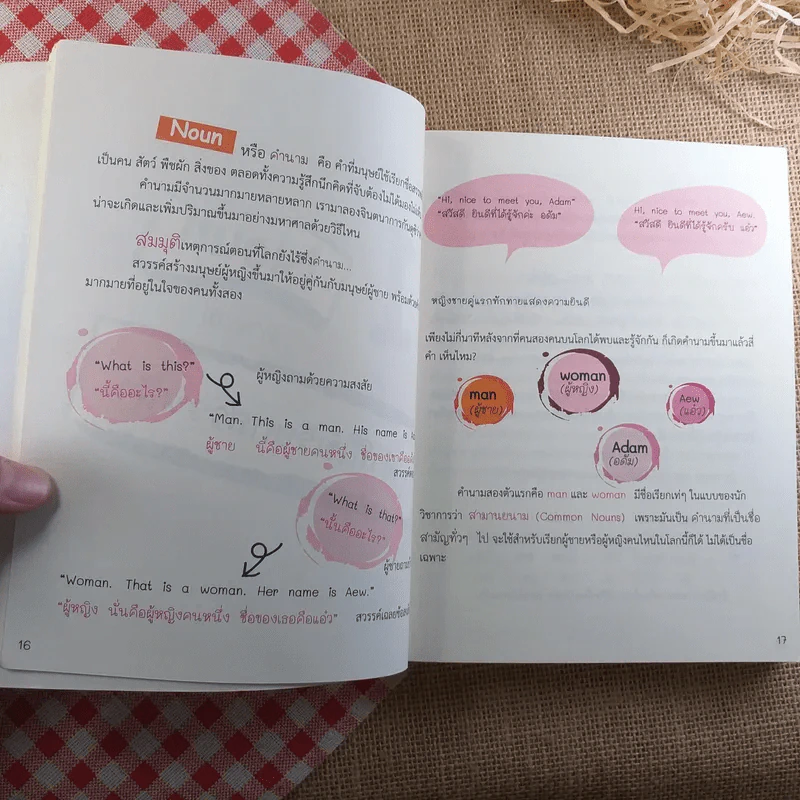 Noun หรือ คำนาม คือ คำที่มนุษย์ใช้เรียกชื่อสรรพ
เป็นคน สัตว์ พืชผัก สิ่งของ ตลอดทั้งความรู้สึกนึกคิดที่จับต้องไม่ได้มองไม่เห็น
คำนามมีจำนวนมากมายหลายหลาก เรามาลองจินตนาการกันดู
น่าจะเกิดและเพิ่มปริมาณขึ้นมาอย่างมหาศาลด้วยวิธีไหน
สมมุติเหตุการณ์ตอนที่โลกยังไร้ซึ่งคำนาม...
สวรรค์สร้างมนุษย์ผู้หญิงขึ้นมาให้อยู่คู่กันกับมนุษย์ผู้ชาย พร้อมด้วย
มากมายที่อยู่ในใจของคนทั้งสอง
"What is this?"
"นี้คืออะไร?"
ผู้หญิงถามด้วยความสงสัย
"Man. This is a man. His name is
ผู้ชาย นี้คือผู้ชายคนหนึ่ง ชื่อของเขาคือ
สวรรค์
"What is that?"
"นั้นคืออะไร?"
"Woman. That is a woman. Her name is Aew."
"ผู้หญิง นั่นคือผู้หญิงคนหนึ่ง ชื่อของเธอคือแอ๋ว" สวรรค์เฉลย
16
"Hi, nice to meet you, Adam"
"สวัสดี ยินดีที่ได้รู้จักค่ะ อดัม"
Hi, nice to meet you, Aew.
"สวัสดี ยินดีที่ได้รู้จักครับ แอ๋ว"
หญิงชายคู่แรกทักทายแสดงความยินดี
เพียงไม่กี่นาทีหลังจากที่คนสองคนบนโลกได้พบและรู้จักกัน ก็เกิดคำนามขึ้นมาแล้วสี่
คำ เห็นไหม?
man
(ผู้ชาย)
woman
(ผู้หญิง)
Aew
(แอ๋ว)
Adam
(อดัม)
คำนามสองตัวแรกคือ man และ woman มีชื่อเรียกเท่ๆ ในแบบของนัก
วิชาการว่า สามานยนาม (Common Nouns) เพราะมันเป็น คำนามที่เป็นชื่อ
สามัญทั่วๆ ไป จะใช้สำหรับเรียกผู้ชายหรือผู้หญิงคนไหนในโลกนี้ก็ได้ ไม่ได้เป็นชื่อ
เฉพาะ
17